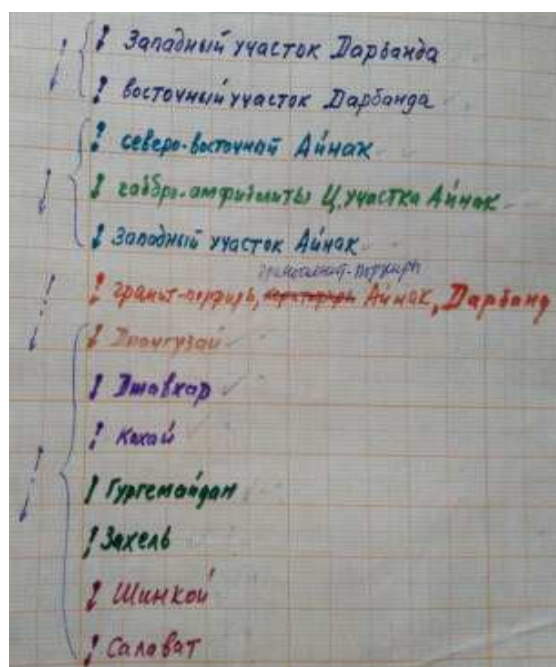 Западный участок Дарбанда
восточный участок Дарбанда
северо-восточный Айнак
габбро-амфиболиты Ц. участка Айнак
Западный участок Айнак
гранодиорит-порфиры
гранит-порфиры, Айнак, Дарбанд
Джавхар
Кохай
Гургемайдан
Захель
Шинкой
Салават